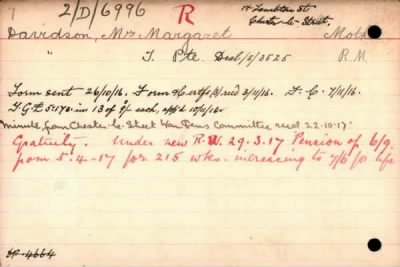 7 2/D/6996 R 14 Lambton St
Chester-le-Street.
Davidson, Mrs Margaret Moth
" J. Pte. Deal/S/3525 R.M.
Form sent 26/10/16. Form & Certfs, (4) recd 3/11/16. F. C. 7/11/16.
in 13 of each, 10/11/16
Minute from Chester-le-Street War Pens Committee recd 22-10-17.
Gratuity. Under new R.W. 29.3.17 Pension of 6/9
from 5.4-17 for 215 wks. increasing to 7/6 for life
DP-4664